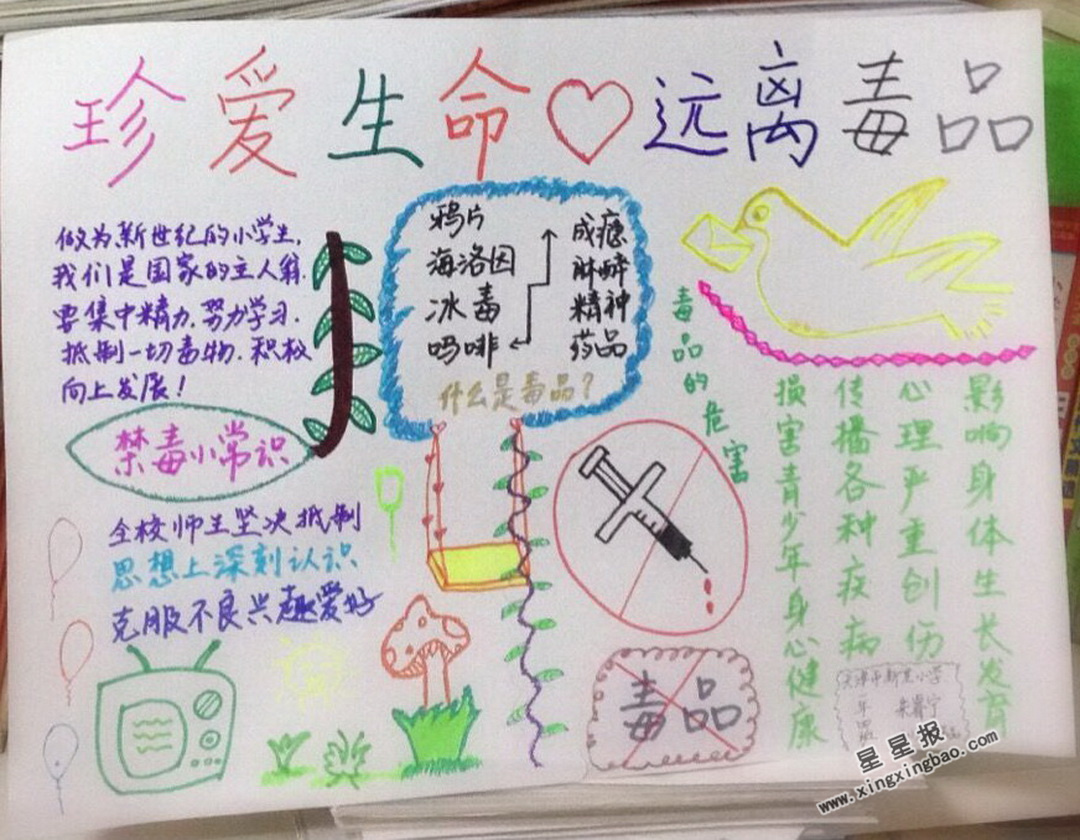 珍爱生命♡远离毒品
做为新世纪的小学生,
我们是国家的主人翁.
要集中精力.努力学习.
抵制一切毒物.积极
向上发展!
禁毒小常识
全校师生坚决抵制
思想上深刻认识
克服不良兴趣爱好
鸦片
海洛因
冰毒
吗啡
成瘾
麻醉
精神
药品
什么是毒品?
毒品的危害
影响身体生长发育
心理严重创伤
传播各种疾病
损害青少年身心健康
毒品
小学
年
星星报
www.xingxingbao.com